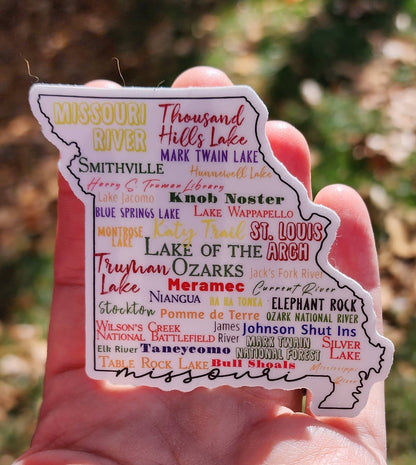 MISSOURI RIVER
Thousand Hills Lake
MARK TWAIN LAKE
SMITHVILLE
Hunnewell Lake
Harry S. Truman Library
Lake Jacomo
Knob Noster
BLUE SPRINGS LAKE
LAKE WAPPAPELLO
MONTROSE LAKE
Katy Trail
ST. LOUIS ARCH
LAKE OF THE OZARKS
Truman Lake
Jack's Fork River
Meramec
Current River
NIANGUA
HA HA TONKA
ELEPHANT ROCK
Stockton
Pomme de Terre
OZARK NATIONAL RIVER
WILSON'S CREEK NATIONAL BATTLEFIELD
James River
Johnson Shut Ins
MARK TWAIN NATIONAL FOREST
SILVER LAKE
Elk River
Taneycomo
TABLE ROCK LAKE
Bull Shoals
Mississippi River
missouri